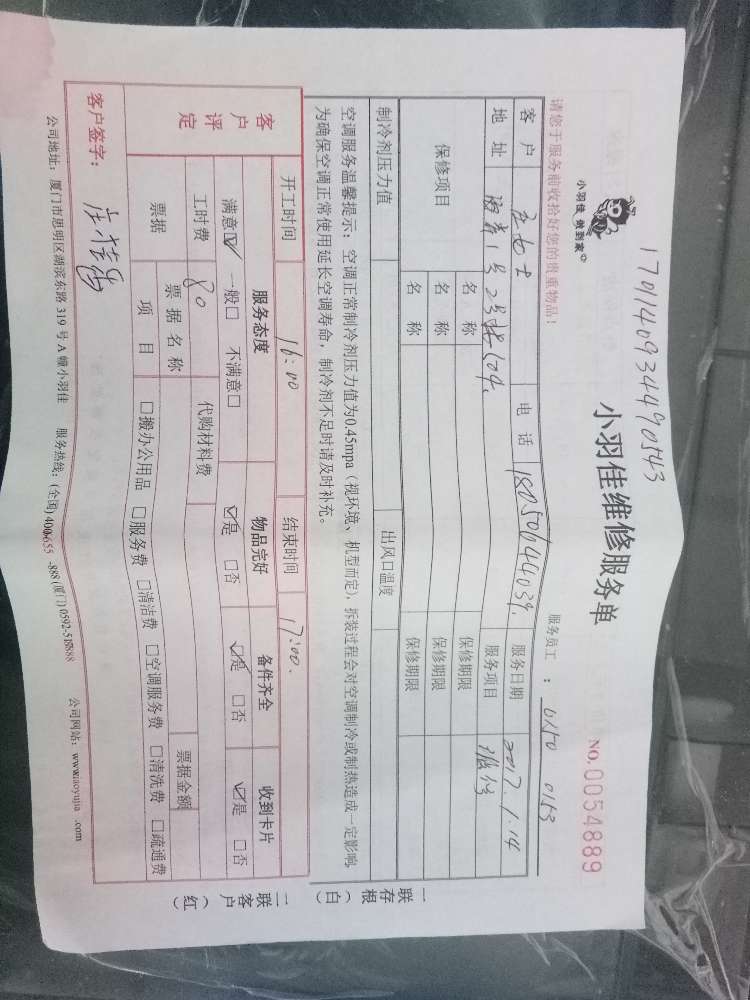 1701140934490543
小羽佳 做到家
小羽佳维修服务单
NO.0054889
请您于服务前收拾好您的贵重物品!
服务员工：0150 0153
客户 庄女士 电话 18050644039. 服务日期 2017.1.14
地址 服务项目 维修
保修项目 名称 保修期限
名称 保修期限
名称 保修期限
制冷剂压力值 出风口温度
空调服务温馨提示：空调正常制冷剂压力值为0.45mpa（视环境、机型而定），拆装过程会对空调制冷或制热造成一定影响,
为确保空调正常使用延长空调寿命，制冷剂不足时请及时补充。
开工时间 16:00 结束时间 17:00.
客户评定 服务态度 物品完好 备件齐全 收到卡片
满意☑ 一般□ 不满意□ ☑是 □否 ☑是 □否 ☑是 □否
工时费 80 代购材料费
票据 票据名称 票据金额
项目 □搬办公用品 □服务费 □清洁费 □空调服务费 □清洗费 □疏通费
客户签字：
公司地址：厦门市思明区湖滨东路 319 号 A 幢小羽佳 服务热线：(全国) 400-655-888 (厦门) 0592-5 公司网站：www.xiaoyujia.com
一联存根（白）
二联客户（红）